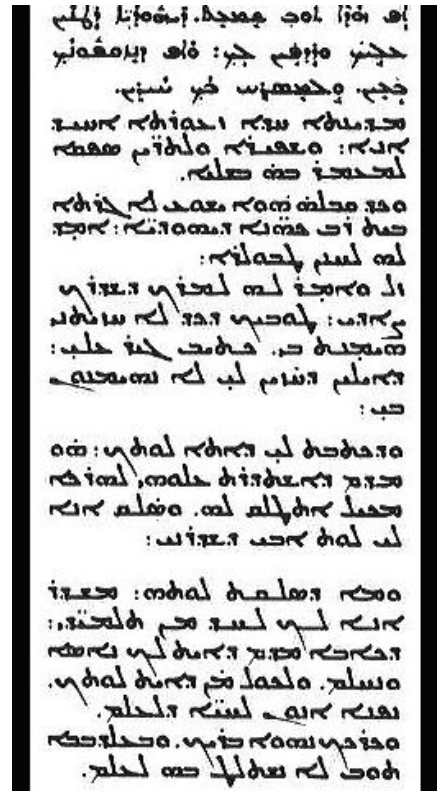 ܐܦ ܗܕܐ ܬܘܒ ܫܡܥܬ. ܕܝܗܘܕܝܐ ܪܛܢܝܢ
ܥܠܝܟ ܘܪܕܦܝܢ ܠܟ: ܘܐܦ ܕܢܙܩܦܘܢܟ
ܒܥܝܢ. ܘܠܡܣܪܚܘ ܒܟ ܚܝܪܝܢ.
ܡܕܝܢܬܐ ܚܕܐ ܙܥܘܪܬܐ ܐܚܝܕ
ܐܢܐ: ܘܫܦܝܪܐ ܘܠܬܪܝܢ ܣܦܩܐ
ܠܡܥܡܪ ܒܗ ܒܫܠܝܐ.
ܘܟܕ ܩܒܠܗ ܗܘܐ ܝܫܘܥ ܠܐܓܪܬܐ
ܒܝܬ ܪܒ ܟܗܢܐ ܕܝܗܘܕܝܐ: ܐܡܪ
ܠܗ ܠܚܢܢ ܛܒܘܠܪܐ:
ܙܠ ܘܐܡܪ ܠܗ ܠܡܪܟ ܕܫܕܪܟ
ܨܐܕܝ: ܛܘܒܝܟ ܕܟܕ ܠܐ ܚܙܝܬܢܝ
ܗܝܡܢܬ ܒܝ. ܟܬܝܒ ܓܝܪ ܥܠܝ:
ܕܐܝܠܝܢ ܕܚܙܝܢ ܠܝ ܠܐ ܢܗܝܡܢܘܢ
ܒܝ:
ܘܕܟܬܒܬ ܠܝ ܕܐܬܐ ܠܘܬܟ: ܗܘ
ܡܕܡ ܕܐܫܬܕܪܬ ܥܠܘܗܝ ܠܗܪܟܐ
ܡܟܝܠ ܠܗ. ܘܣܠܩ ܐܢܐ
ܠܝ ܠܘܬ ܐܒܝ ܕܫܕܪܢܝ:
ܘܡܐ ܕܣܠܩܬ ܠܘܬܗ: ܡܫܕܪ
ܐܢܐ ܠܟ ܠܚܕ ܡܢ ܬܠܡܝܕܝ:
ܕܟܐܒܐ ܡܕܡ ܕܐܝܬ ܠܟ ܢܐܣܐ
ܘܢܚܠܡ. ܘܠܟܠ ܡܢ ܕܐܝܬ ܠܘܬܟ.
ܢܦܢܐ ܐܢܘܢ ܠܚܝܐ ܕܠܥܠܡ.
ܘܟܪܟܟ ܢܗܘܐ ܒܪܝܟ. ܘܒܥܠܕܒܒܐ
ܬܘܒ ܠܐ ܢܫܬܠܛ ܒܗ ܠܥܠܡ.